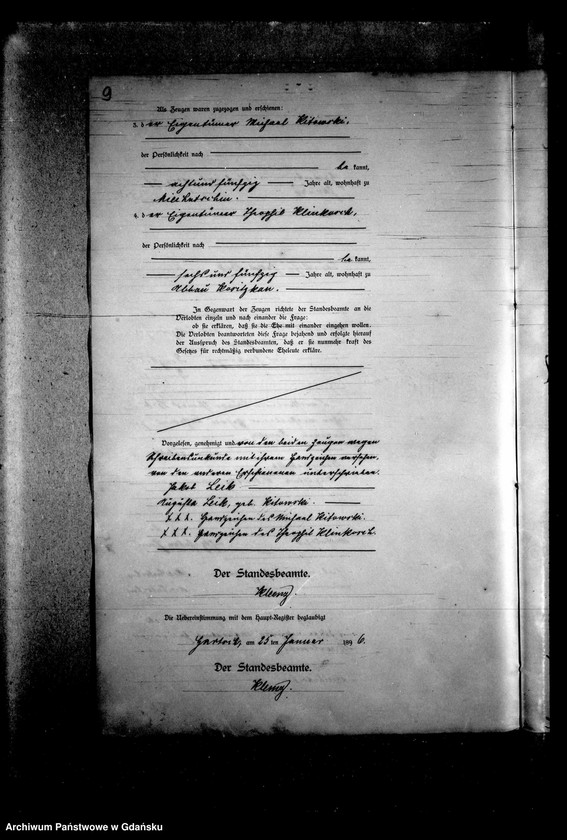 9
Als Zeugen waren zugezogen und erschienen:
3. der Eigentümer Michael Kitowski,
der Persönlichkeit nach
be kannt,
achtundfünfzig Jahre alt, wohnhaft zu
4. der Eigentümer Theophil Klinkosch,
der Persönlichkeit nach
be kannt,
sechsundfünfzig Jahre alt, wohnhaft zu
Abbau
In Gegenwart der Zeugen richtete der Standesbeamte an die
Verlobten einzeln und nach einander die Frage:
ob sie erklären, daß sie die Ehe mit einander eingehen wollen.
Die Verlobten beantworteten diese Frage bejahend und erfolgte hierauf
der Ausspruch des Standesbeamten, daß er sie nunmehr kraft des
Gesetzes für rechtmäßig verbundene Eheleute erkläre.
Vorgelesen, genehmigt und von den beiden Zeugen wegen
Schreibensunkunde mit ihrem Handzeichen versehen,
von den anderen Erschienenen unterschrieben.
Jakob Leik
Augusta Leik, geb. Kitowski.
x x x. Handzeichen des Michael Kitowski.
x x x. Handzeichen des Theophil Klinkosch.
Der Standesbeamte.
Die Uebereinstimmung mit dem Haupt-Register beglaubigt
am 25 ten Januar 1896.
Der Standesbeamte.
Archiwum Państwowe w Gdańsku